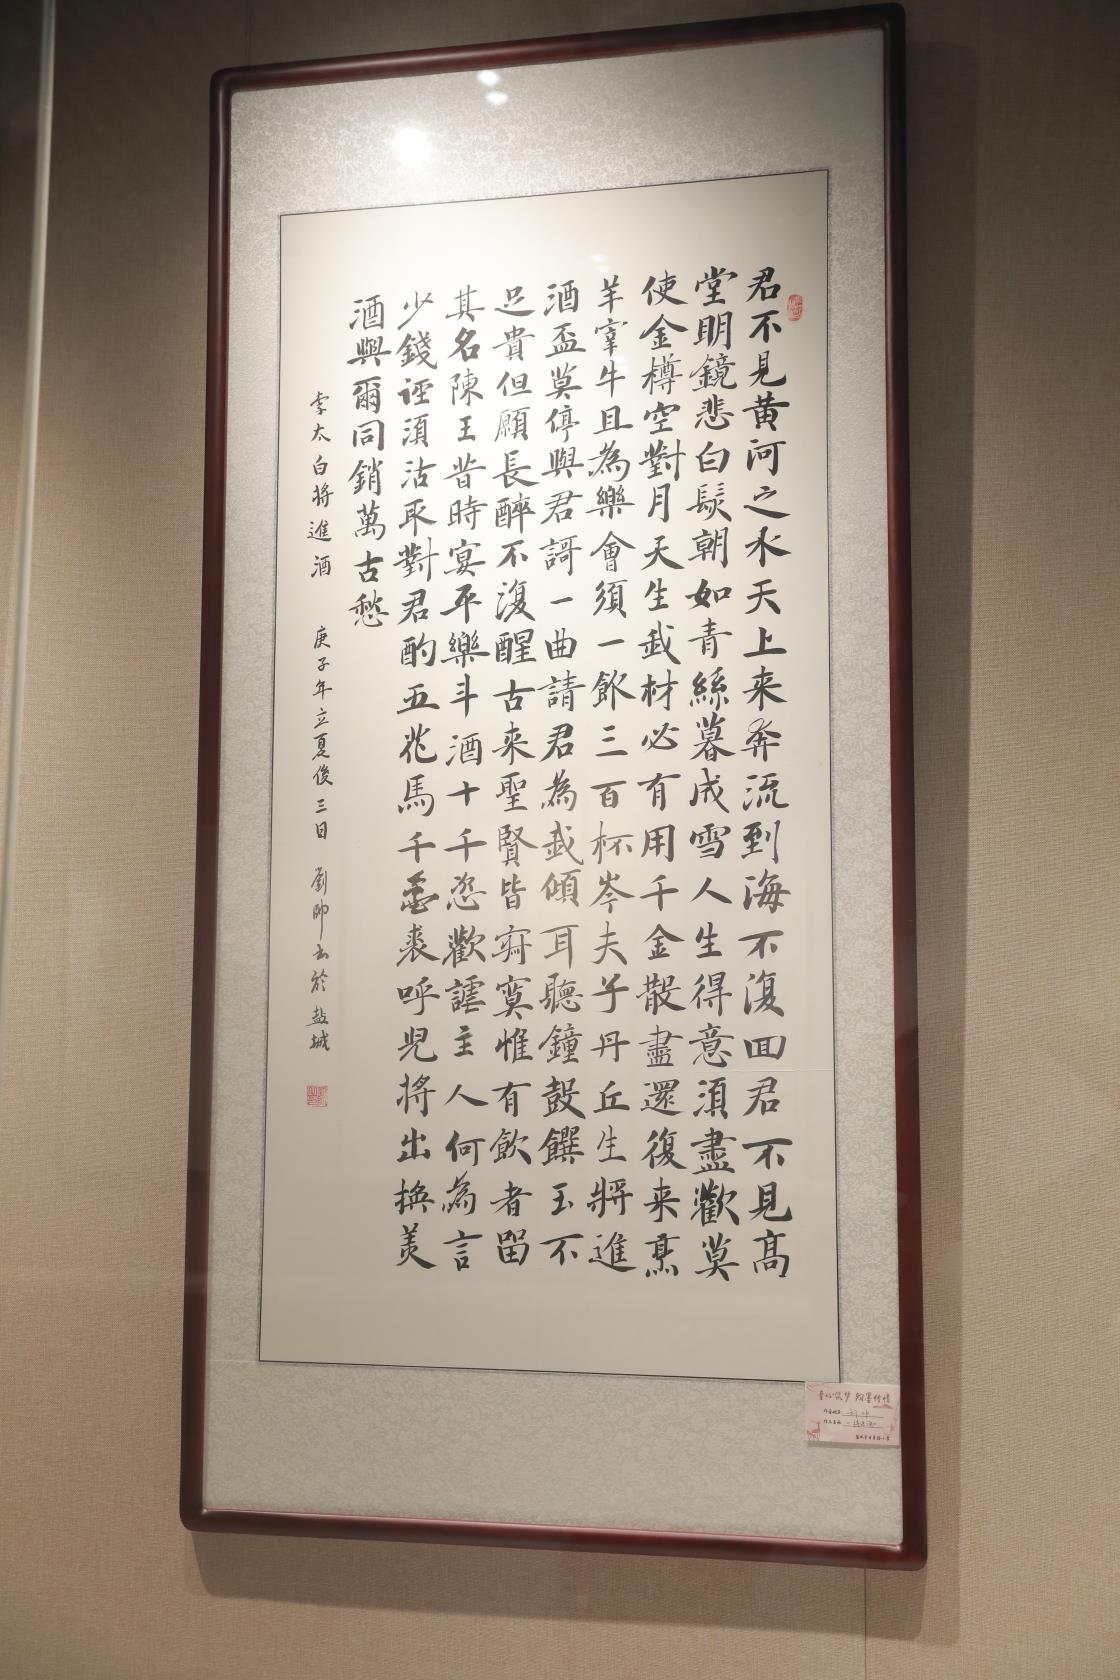 君不見黃河之水天上来奔流到海不復回君不見高
堂明鏡悲白髮朝如青絲暮成雪人生得意須盡歡莫
使金樽空對月天生我材必有用千金散盡還復来烹
羊宰牛且為樂會須一飲三百杯岑夫子丹丘生將進
酒盃莫停與君謌一曲請君為我傾耳聽鐘鼓饌玉不
足貴但願長醉不復醒古来聖賢皆寂寞惟有飲者留
其名陳王昔時宴平樂斗酒十千恣歡謔主人何為言
少錢逕須沽取對君酌五花馬千金裘呼兒將出換美
酒與爾同銷萬古愁
李太白將進酒 庚子年立夏後三日 劉帥書於盐城
童心筑梦 翰墨传情
作者姓名:
作品名称: